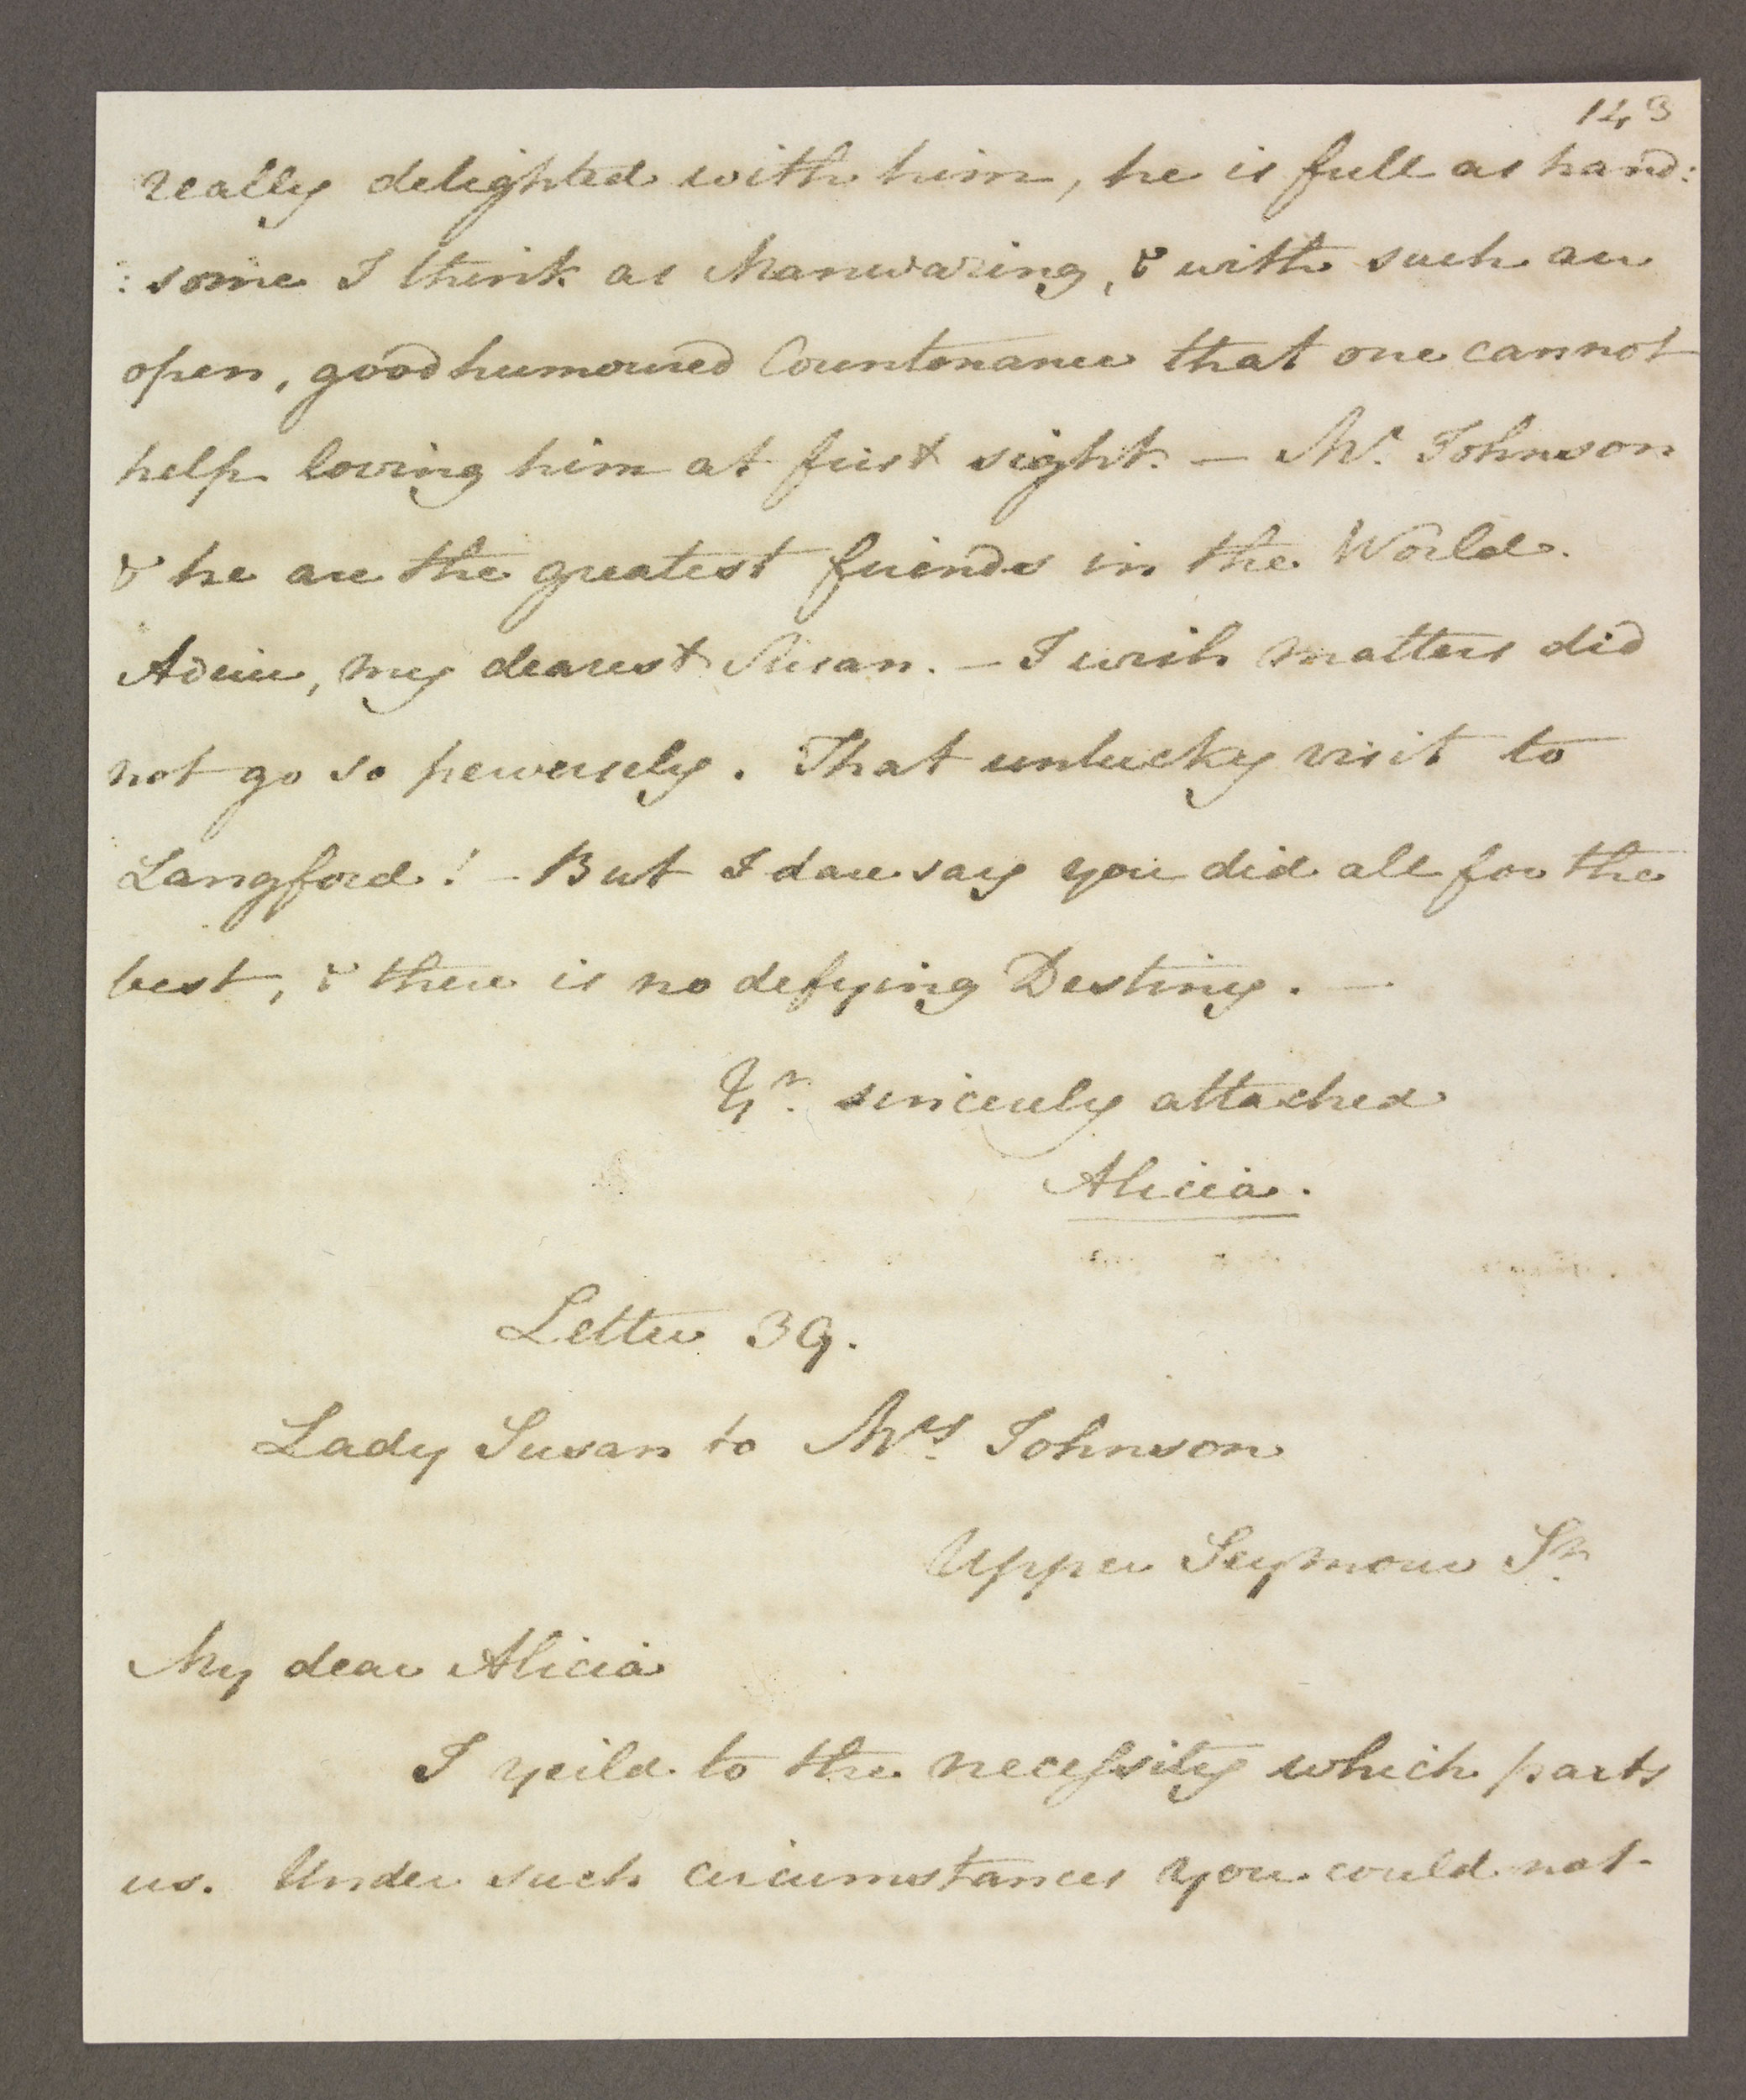 143
really delighted with him, he is full as hand:
:some I think as Manwaring, & with such an
open, good humoured Countenance that one cannot
help loving him at first sight. – Mr. Johnson
& he are the greatest friends in the World.
Adieu, my dearest Susan. – I wish matters did
not go so perversely. That unlucky visit to
Langford! – But I dare say you did all for the
best, & there is no defying Destiny. –
Yr. sincerely attached
Alicia.
Letter 39.
Lady Susan to Mrs. Johnson
Upper Seymour St.
My dear Alicia
I yeild to the necessity which parts
us. Under such circumstances you could not